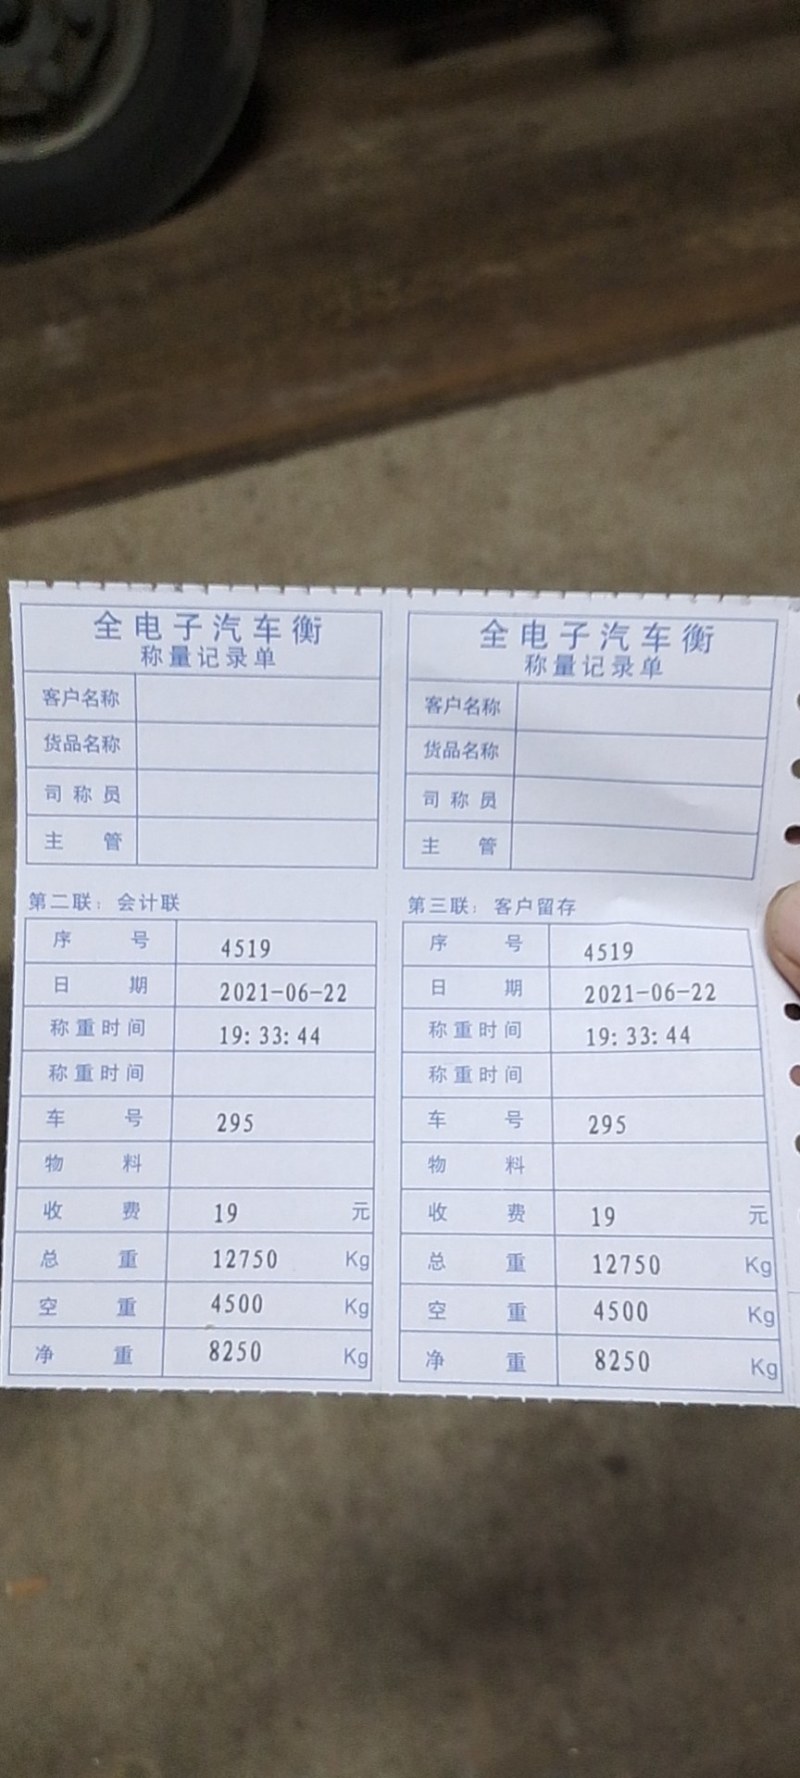 全电子汽车衡
称量记录单
客户名称
货品名称
司称员
主管
第二联：会计联
序号 4519
日期 2021-06-22
称重时间 19:33:44
称重时间
车号 295
物料
收费 19 元
总重 12750 Kg
空重 4500 Kg
净重 8250 Kg
全电子汽车衡
称量记录单
客户名称
货品名称
司称员
主管
第三联：客户留存
序号 4519
日期 2021-06-22
称重时间 19:33:44
称重时间
车号 295
物料
收费 19 元
总重 12750 Kg
空重 4500 Kg
净重 8250 Kg